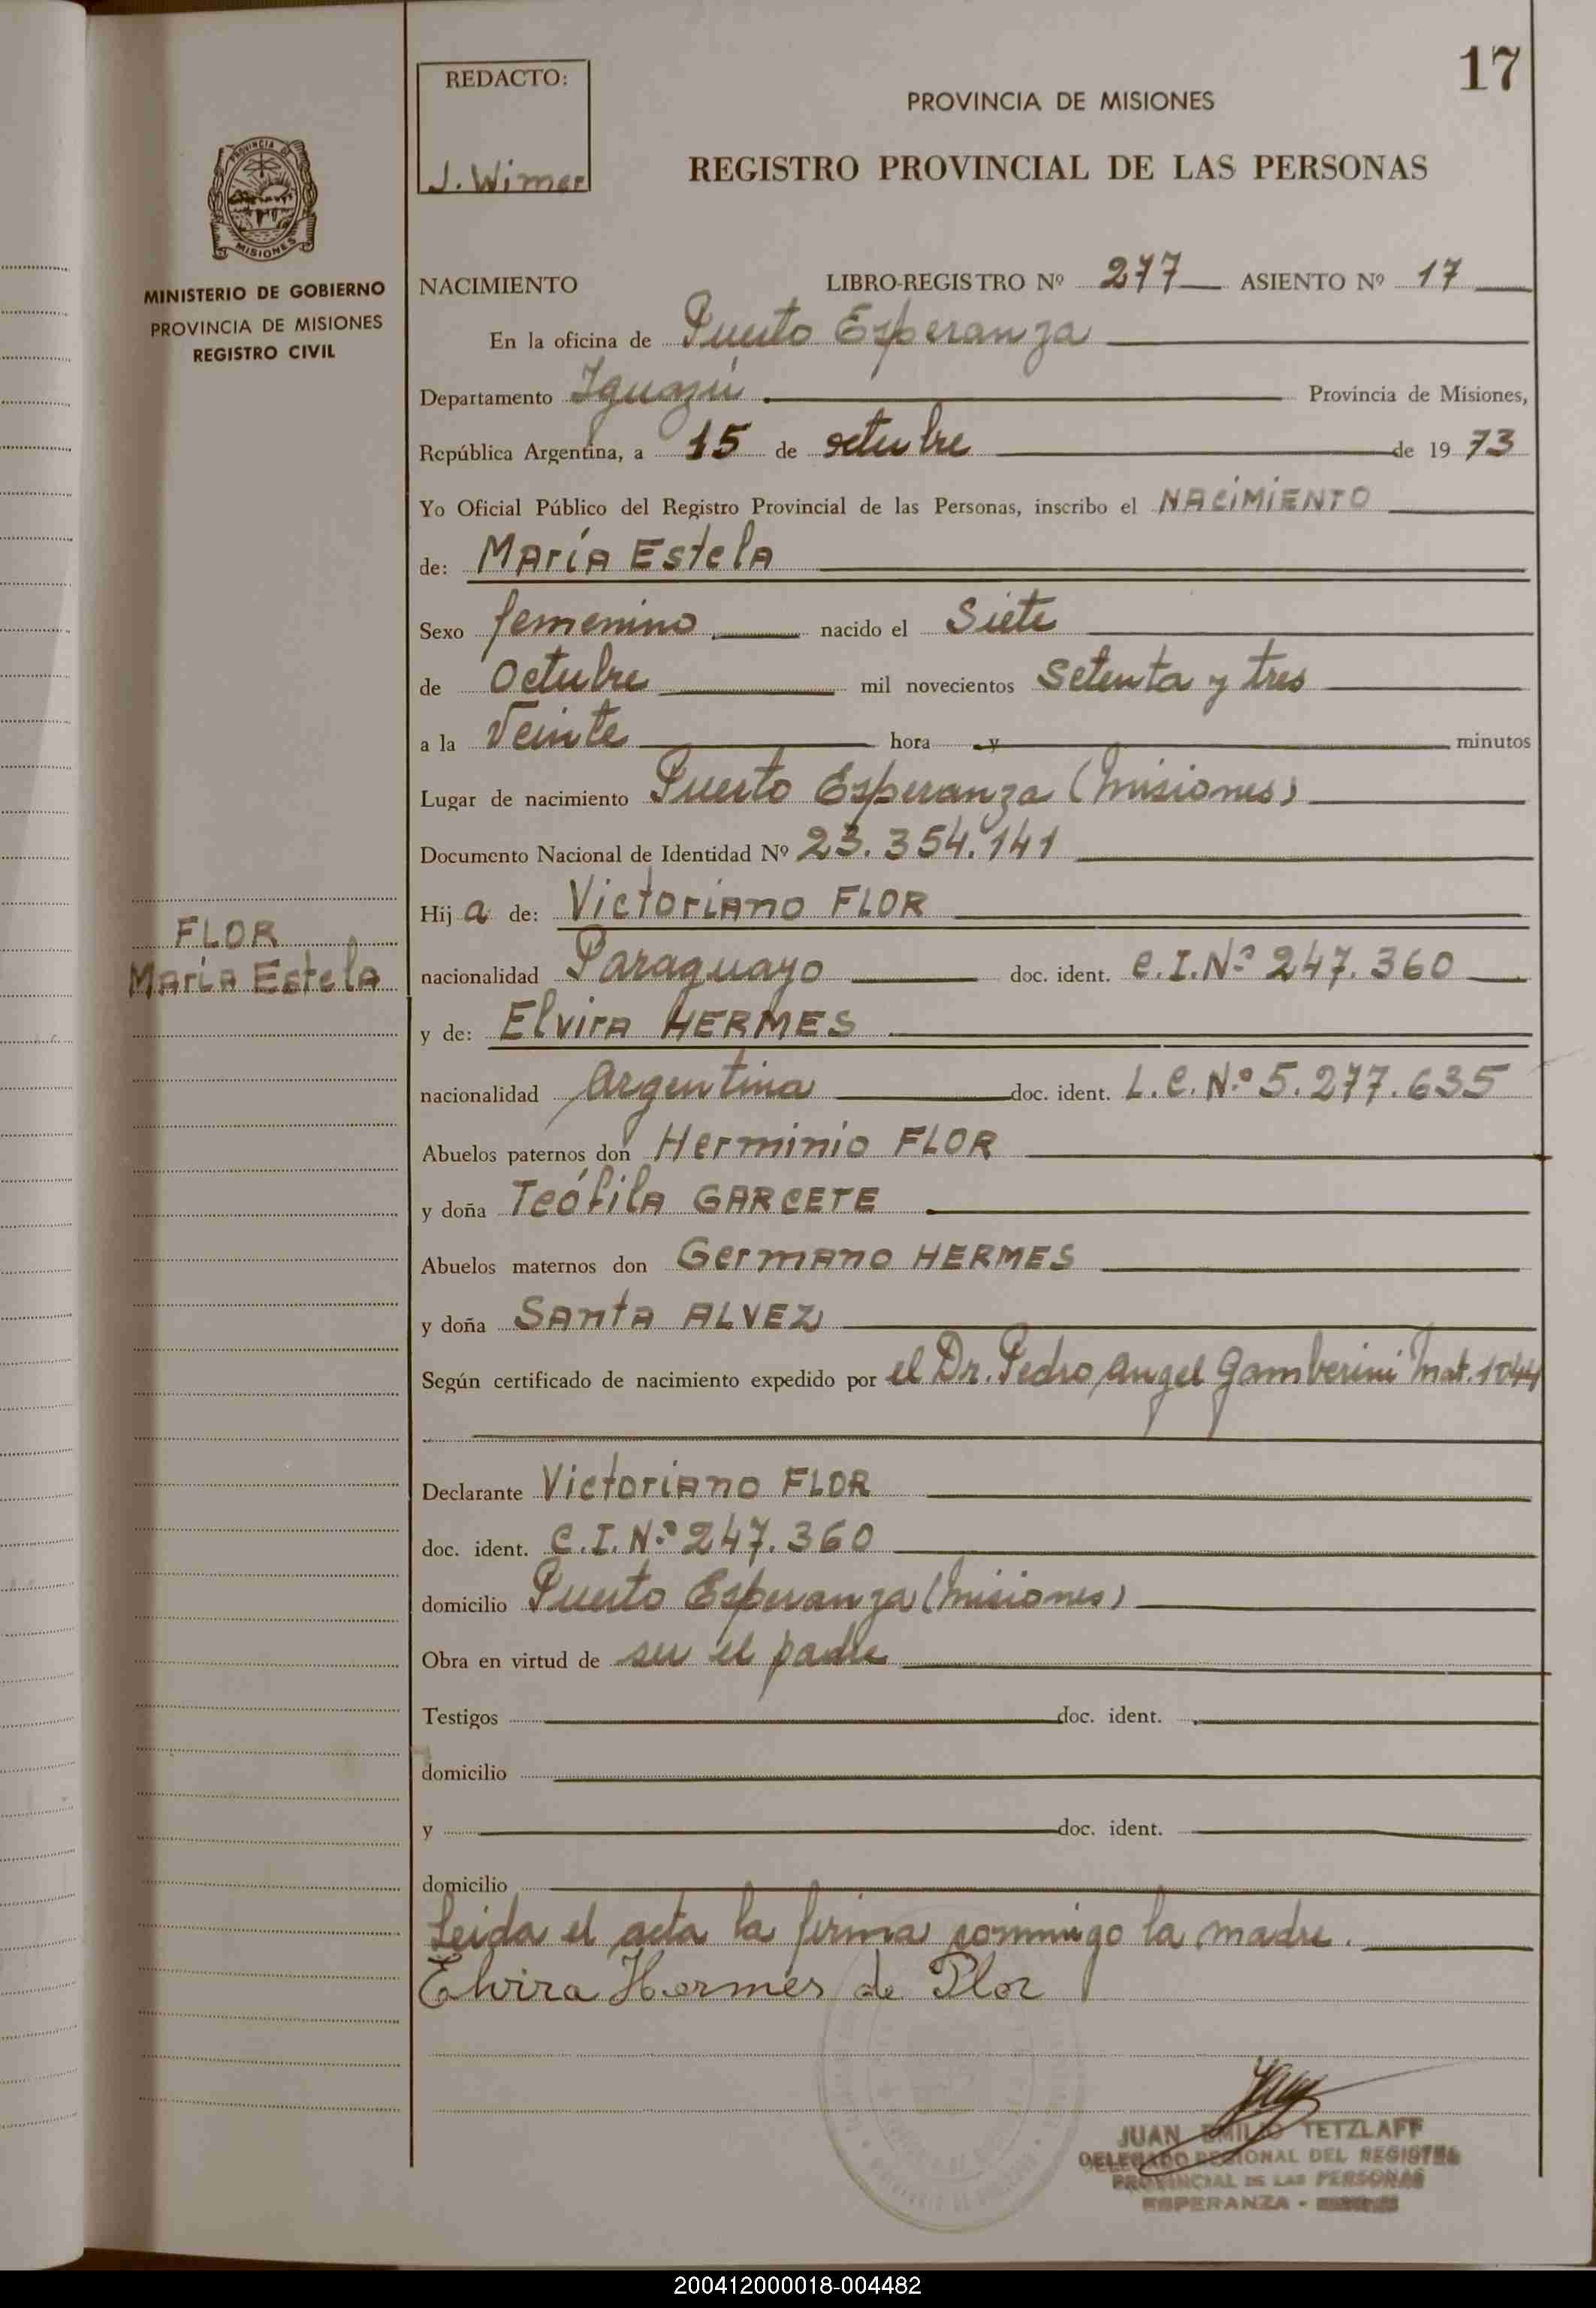 17
REDACTO:
J. Wimer
PROVINCIA DE MISIONES
REGISTRO PROVINCIAL DE LAS PERSONAS
PROVINCIA DE
MISIONES
MINISTERIO DE GOBIERNO
PROVINCIA DE MISIONES
REGISTRO CIVIL
NACIMIENTO LIBRO-REGISTRO Nº 277 ASIENTO Nº 17
En la oficina de Puerto Esperanza
Departamento Iguazú Provincia de Misiones,
República Argentina, a 15 de octubre de 19 73
Yo Oficial Público del Registro Provincial de las Personas, inscribo el NACIMIENTO
de: María Estela
Sexo femenino nacido el Siete
de Octubre mil novecientos Setenta y tres
a la Veinte hora y minutos
Lugar de nacimiento Puerto Esperanza (Misiones)
Documento Nacional de Identidad Nº 23.354.141
Hij a de: Victoriano FLOR
FLOR
María Estela
nacionalidad Paraguayo doc. ident. C.I.Nº 247.360
y de: Elvira HERMES
nacionalidad Argentina doc. ident. L.C.Nº 5.277.635
Abuelos paternos don Herminio FLOR
y doña Teófila GARCETE
Abuelos maternos don Germano HERMES
y doña Santa ALVEZ
Según certificado de nacimiento expedido por el Dr. Pedro Angel Gamberini Mat. 1044
Declarante Victoriano FLOR
doc. ident. C.I.Nº 247.360
domicilio Puerto Esperanza (Misiones)
Obra en virtud de ser el padre
Testigos doc. ident.
domicilio
y doc. ident.
domicilio
Leida el acta la firma conmigo la madre.
Elvira Hermes de Flor
JUAN EMILIO TETZLAFF
DELEGADO REGIONAL DEL REGISTRO
PROVINCIAL DE LAS PERSONAS
ESPERANZA -
200412000018-004482